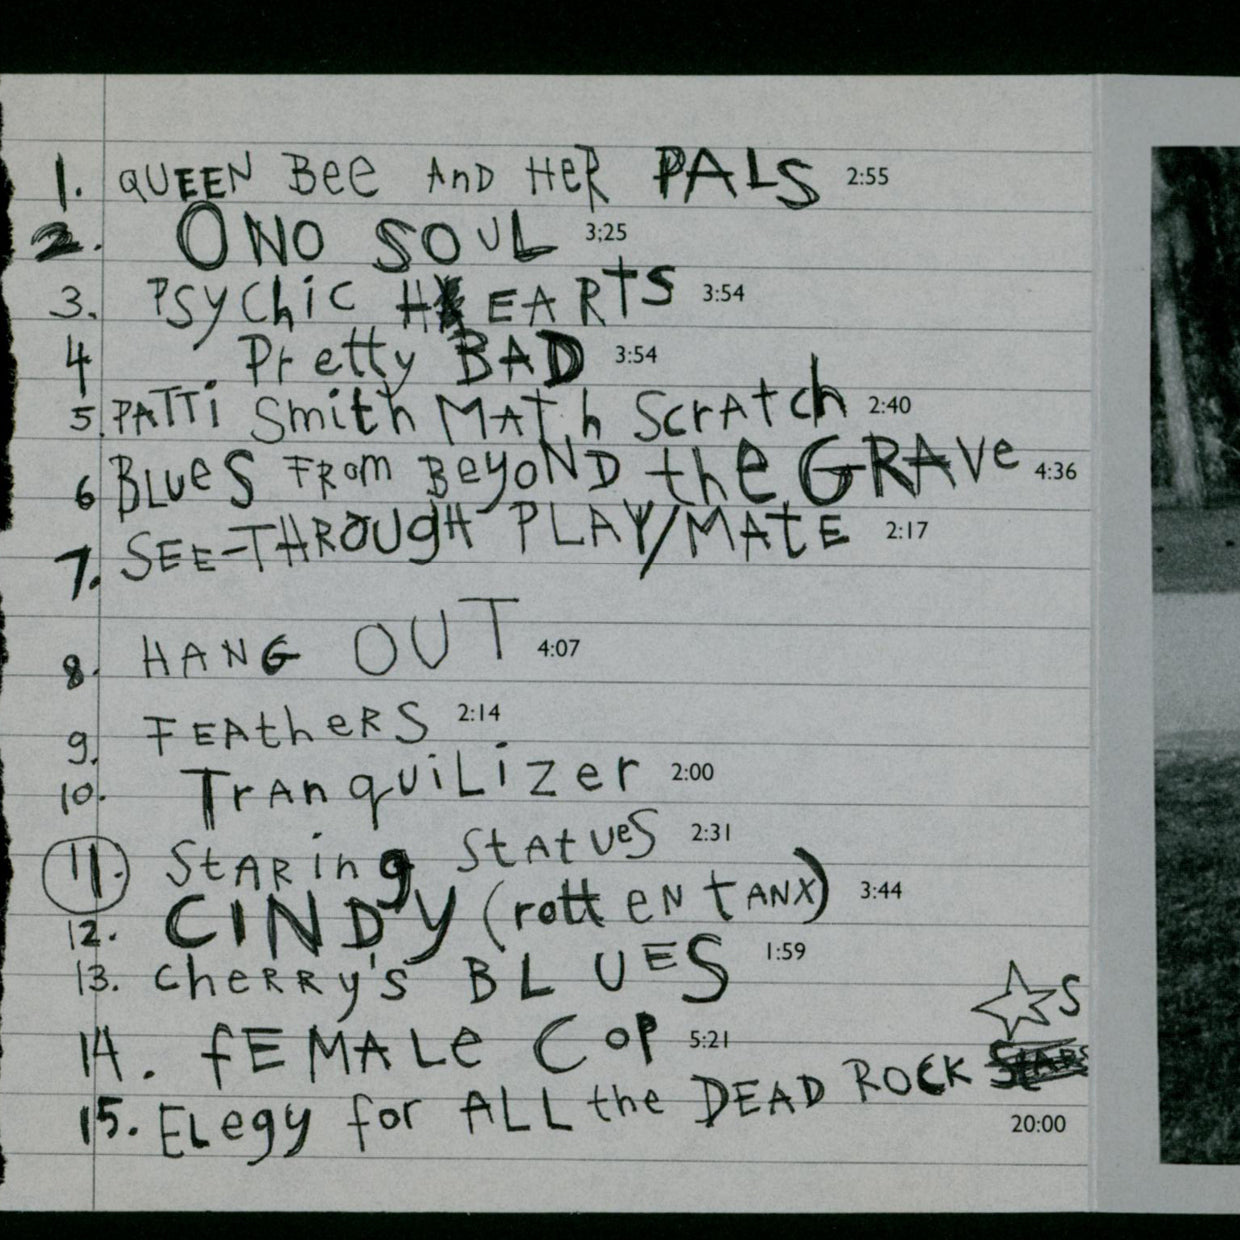 1. QUEEN Bee AND HeR PALS 2:55
2. ONO SOUL 3;25
3. PSYChic HEARTS 3:54
4 Pretty BAD 3:54
5. PATTi Smith MATh ScrAtch 2:40
6 BLueS FRom BeyoND the GRAVe 4:36
7. SEE-THROUgH PLAY/MAtE 2:17
8. HANG OUT 4:07
9. FEAtheRS 2:14
10. TrAnquiLizer 2:00
11. StARing StAtUeS 2:31
12. CINDy (rott eN tANX) 3:44
13. cheRRy's BLUES 1:59
14. fEMALe CoP 5:21
☆S
15. ELegy for ALL the DEAD ROCK STARS
20:00